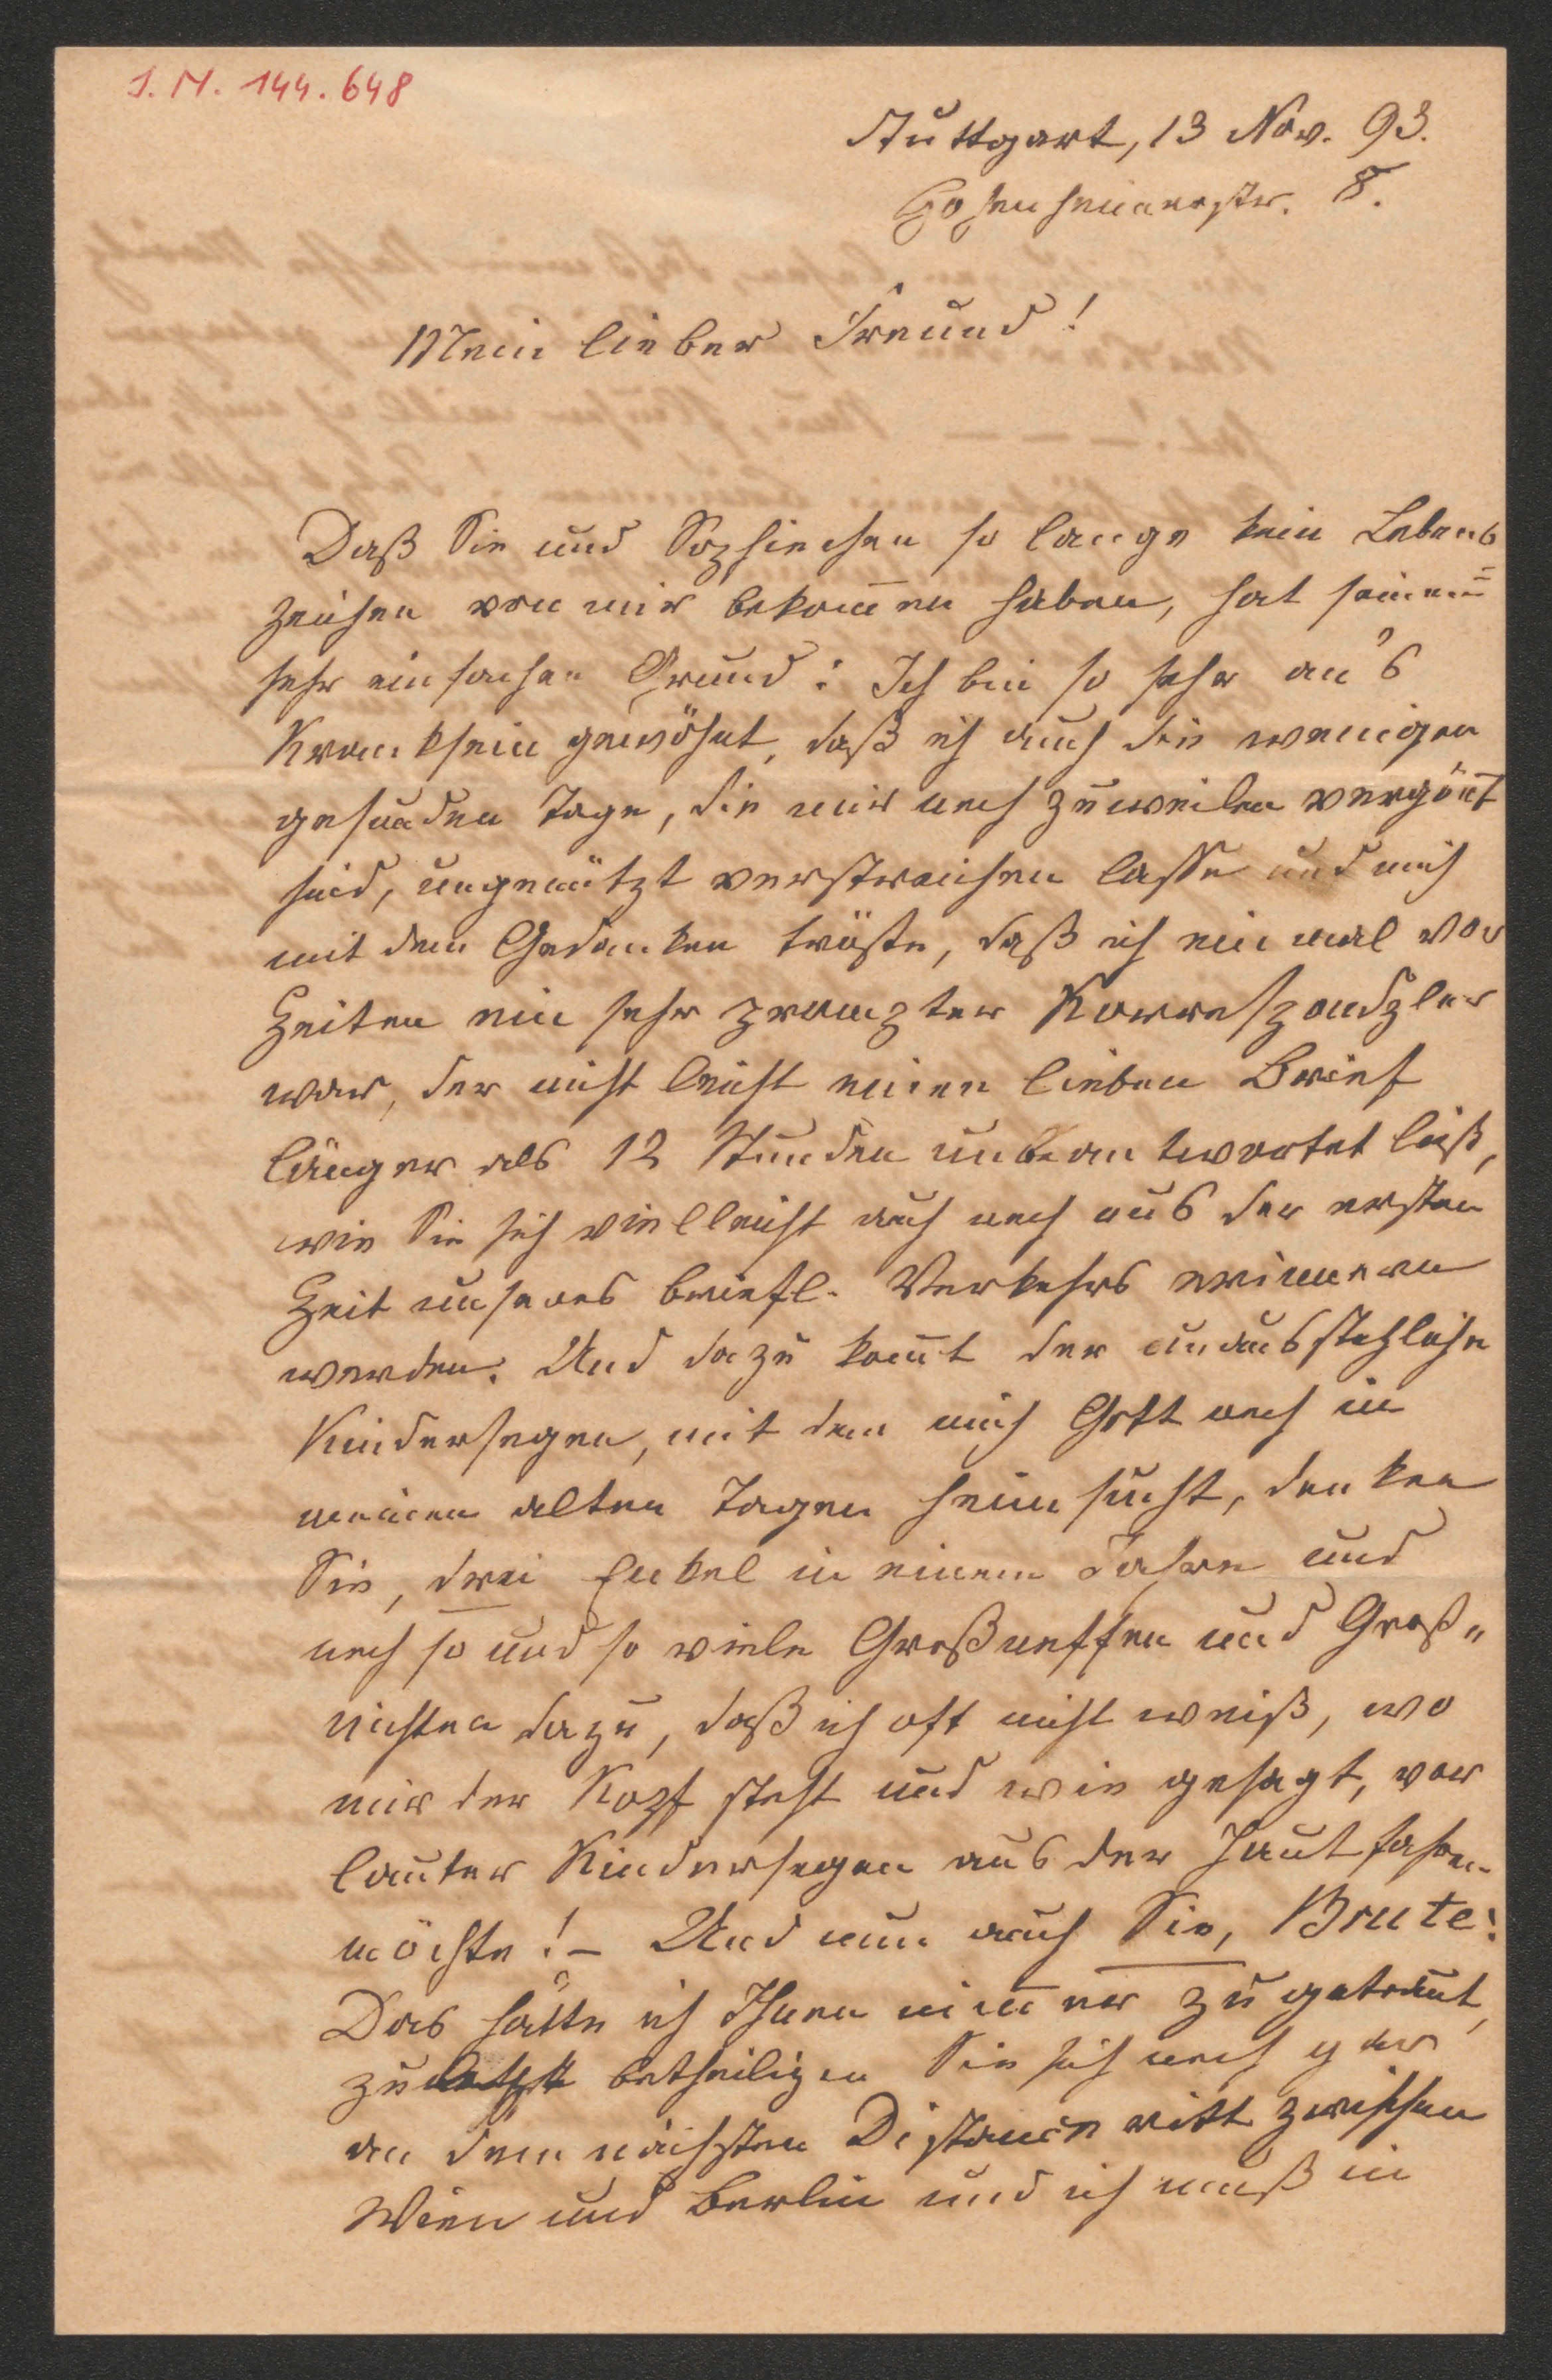 I.N. 144.648
Stuttgart, 13 Nov. 93.
Hohenheimerstr. 8.
Mein lieber Freund!
Daß Sie und Sophiechen so lange kein Lebens
zeichen von mir bekom̅en haben, hat seinen
sehr einfachen Grund: Ich bin so sehr an's
Kranksein gewöhnt, daß ich auch die wenigen
gesunden Tage, die mir noch zuweilen vergön̅t
sind, ungenützt verstreichen lasse und mich
mit dem Gedanken tröste, daß ich einmal vor
Zeiten ein sehr prompter Korrespondzler
war, der nicht leicht einen lieben Brief
länger als 12 Stunden unbeantwortet ließ,
wie Sie sich vielleicht auch noch aus der ersten
Zeit unseres briefl. Verkehrs erinnern
werden. Und dazu kom̅t der unausstehliche
Kindersegen, mit dem mich Gott noch in
meinen alten Tagen heimsucht, denken
Sie, drei Enkel in einem Jahre und
noch so und so viele Großneffen und Groß„
nichten dazu, daß ich oft nicht weiß, wo
mir der Kopf steht und wie gesagt, vor
lauter Kindersegen aus der Haut fahren
möchte! – Und nun auch Sie, Brute!
Das hätte ich Ihnen nim̅er zugetraut,
zuletzt betheiligen Sie sich noch gar
an dem nächsten Distanceritt zwischen
Wien und Berlin und ich muß in